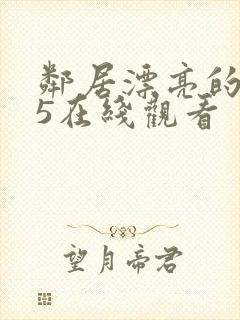 鄰居漂亮的
5在綫觀看
望月帝君